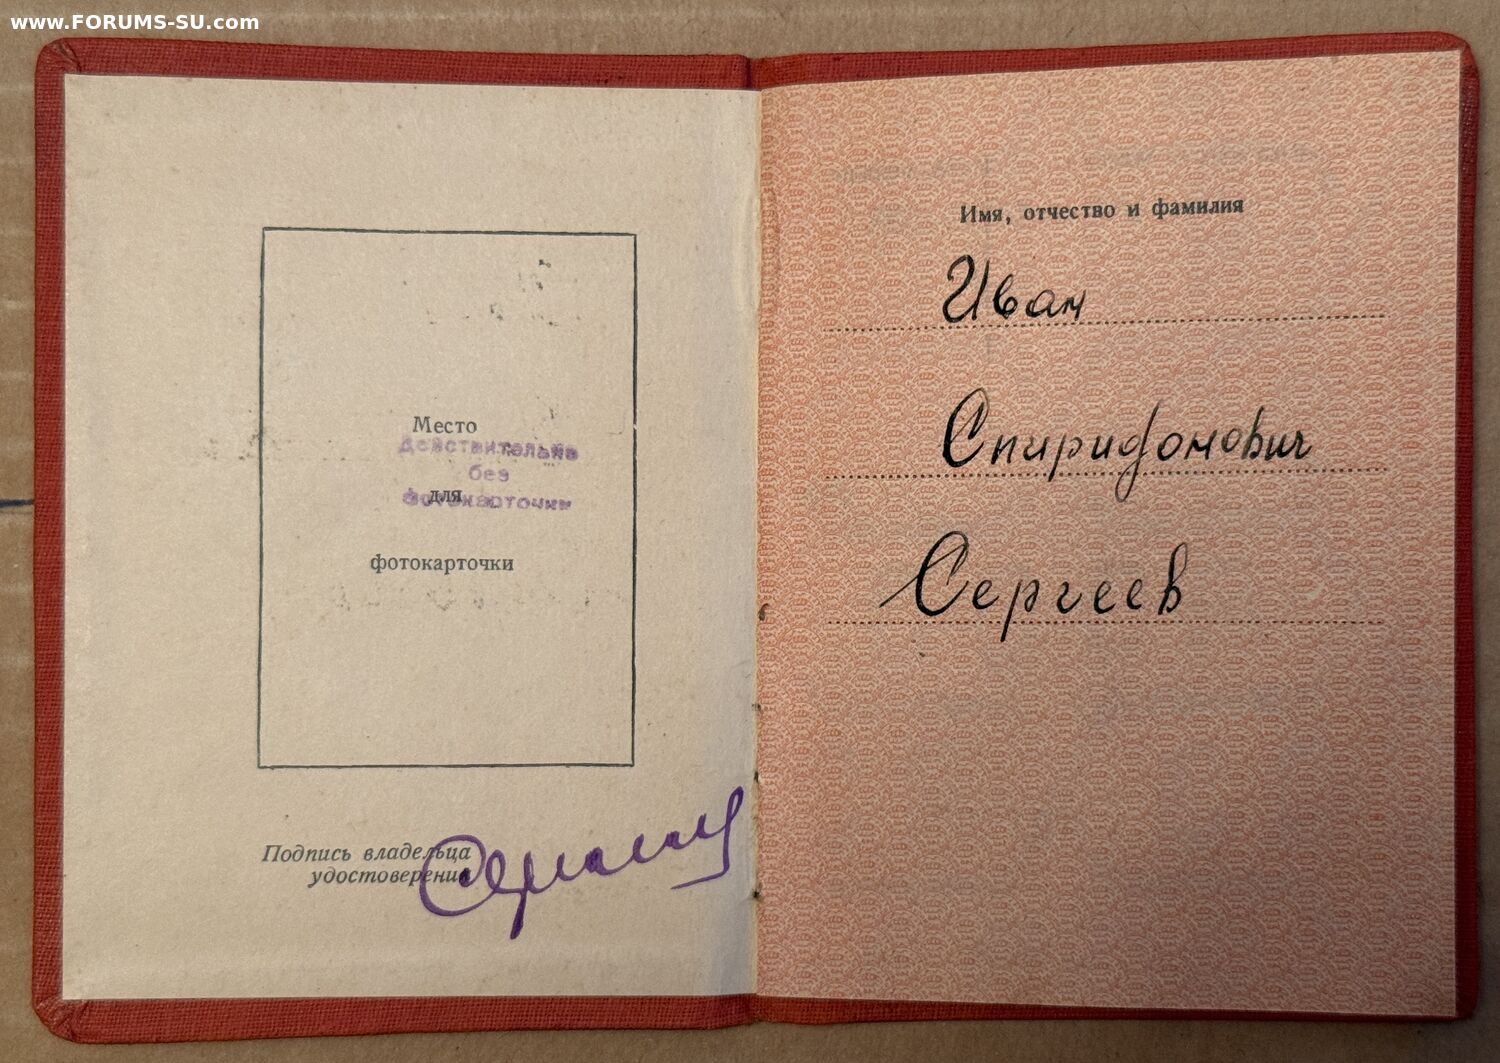 www.FORUMS-SU.com
Место
Действительно
без
фотокарточки
для
фотокарточки
Подпись владельца
удостоверения
Имя, отчество и фамилия
Иван
Спиридонович
Сергеев